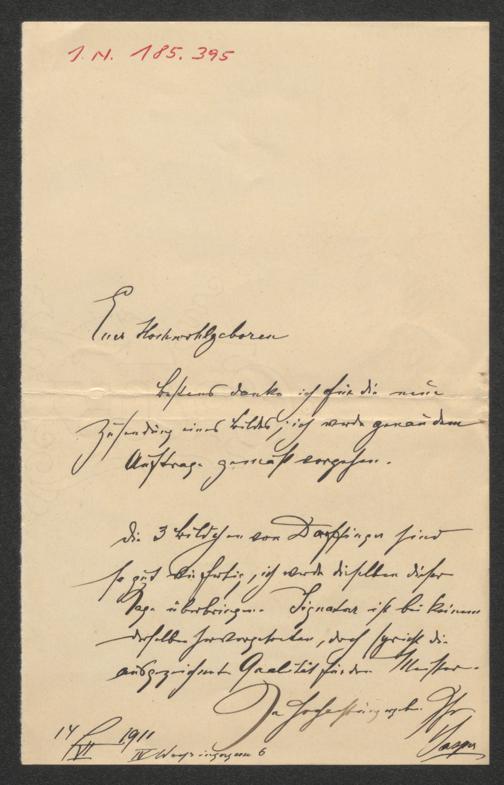 J. N. 185.395
Euer Hochwohlgeboren
bestens danke ich für die neue
Zusendung eines Bildes, ich werde genau dem
Auftrage gemäß vorgehen.
die 3 Bildchen von Daffinger sind
so gut wie fertig, ich werde dieselben dieser
Tage überbringen. Signatur ist bei keinem
derselben hervorgetreten, doch spricht die
ausgezeichnete Qualität für den Meister.
In Hochachtung Ihr
14 1911
IV 6